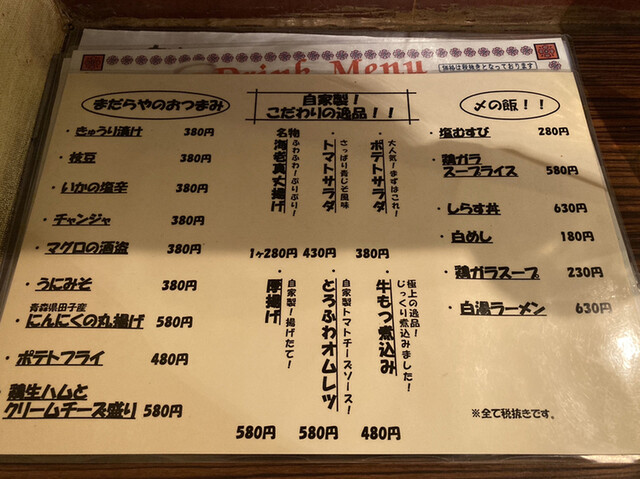 Drink Menu
価格は税抜きとなっております
まだらやのおつまみ
・きゅうり漬け 380円
・枝豆 380円
・いかの塩辛 380円
・チャンジャ 380円
・マグロの酒盗 380円
・うにみそ 380円
青森県田子産
・にんにくの丸揚げ 580円
・ポテトフライ 480円
・鶏生ハムと
クリームチーズ盛り 580円
自家製！
こだわりの逸品！！
大人気！まずはこれ！
・ポテトサラダ
380円
さっぱり青じそ風味
・トマトサラダ
430円
ふわふわ！ぷりぷり！
名物
海老真丈揚げ
1ヶ280円
極上の逸品！
じっくり煮込みました！
・牛もつ煮込み
480円
自家製トマトチーズソース！
・とろふわオムレツ
580円
自家製！揚げたて！
・厚揚げ
580円
〆の飯！！
・塩むすび 280円
・鶏ガラ
スープライス 580円
・しらす丼 630円
・白めし 180円
・鶏ガラスープ 230円
・白湯ラーメン 630円
※全て税抜きです。